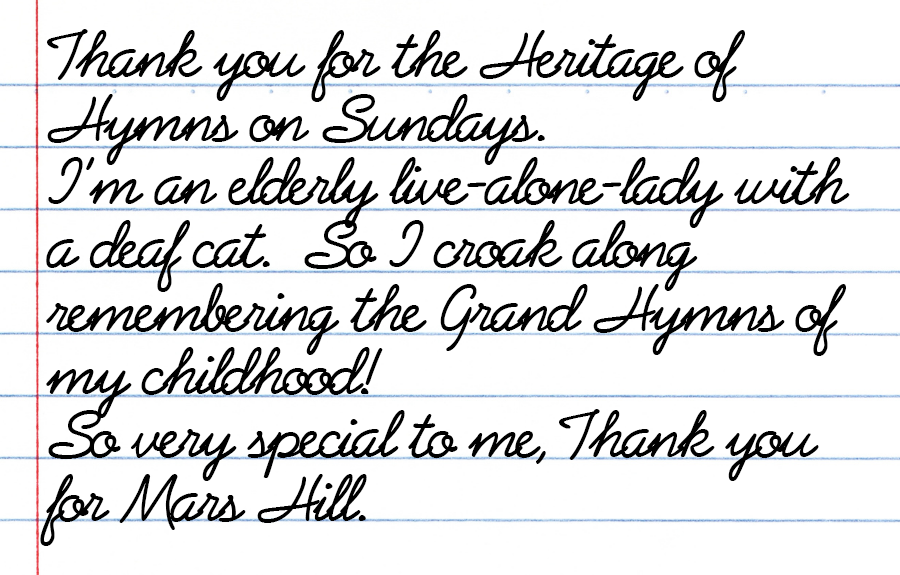 Thank you for the Heritage of
Hymns on Sundays.
I'm an elderly live-alone-lady with
a deaf cat.  So I croak along
remembering the Grand Hymns of
my childhood!
So very special to me, Thank you
for Mars Hill.